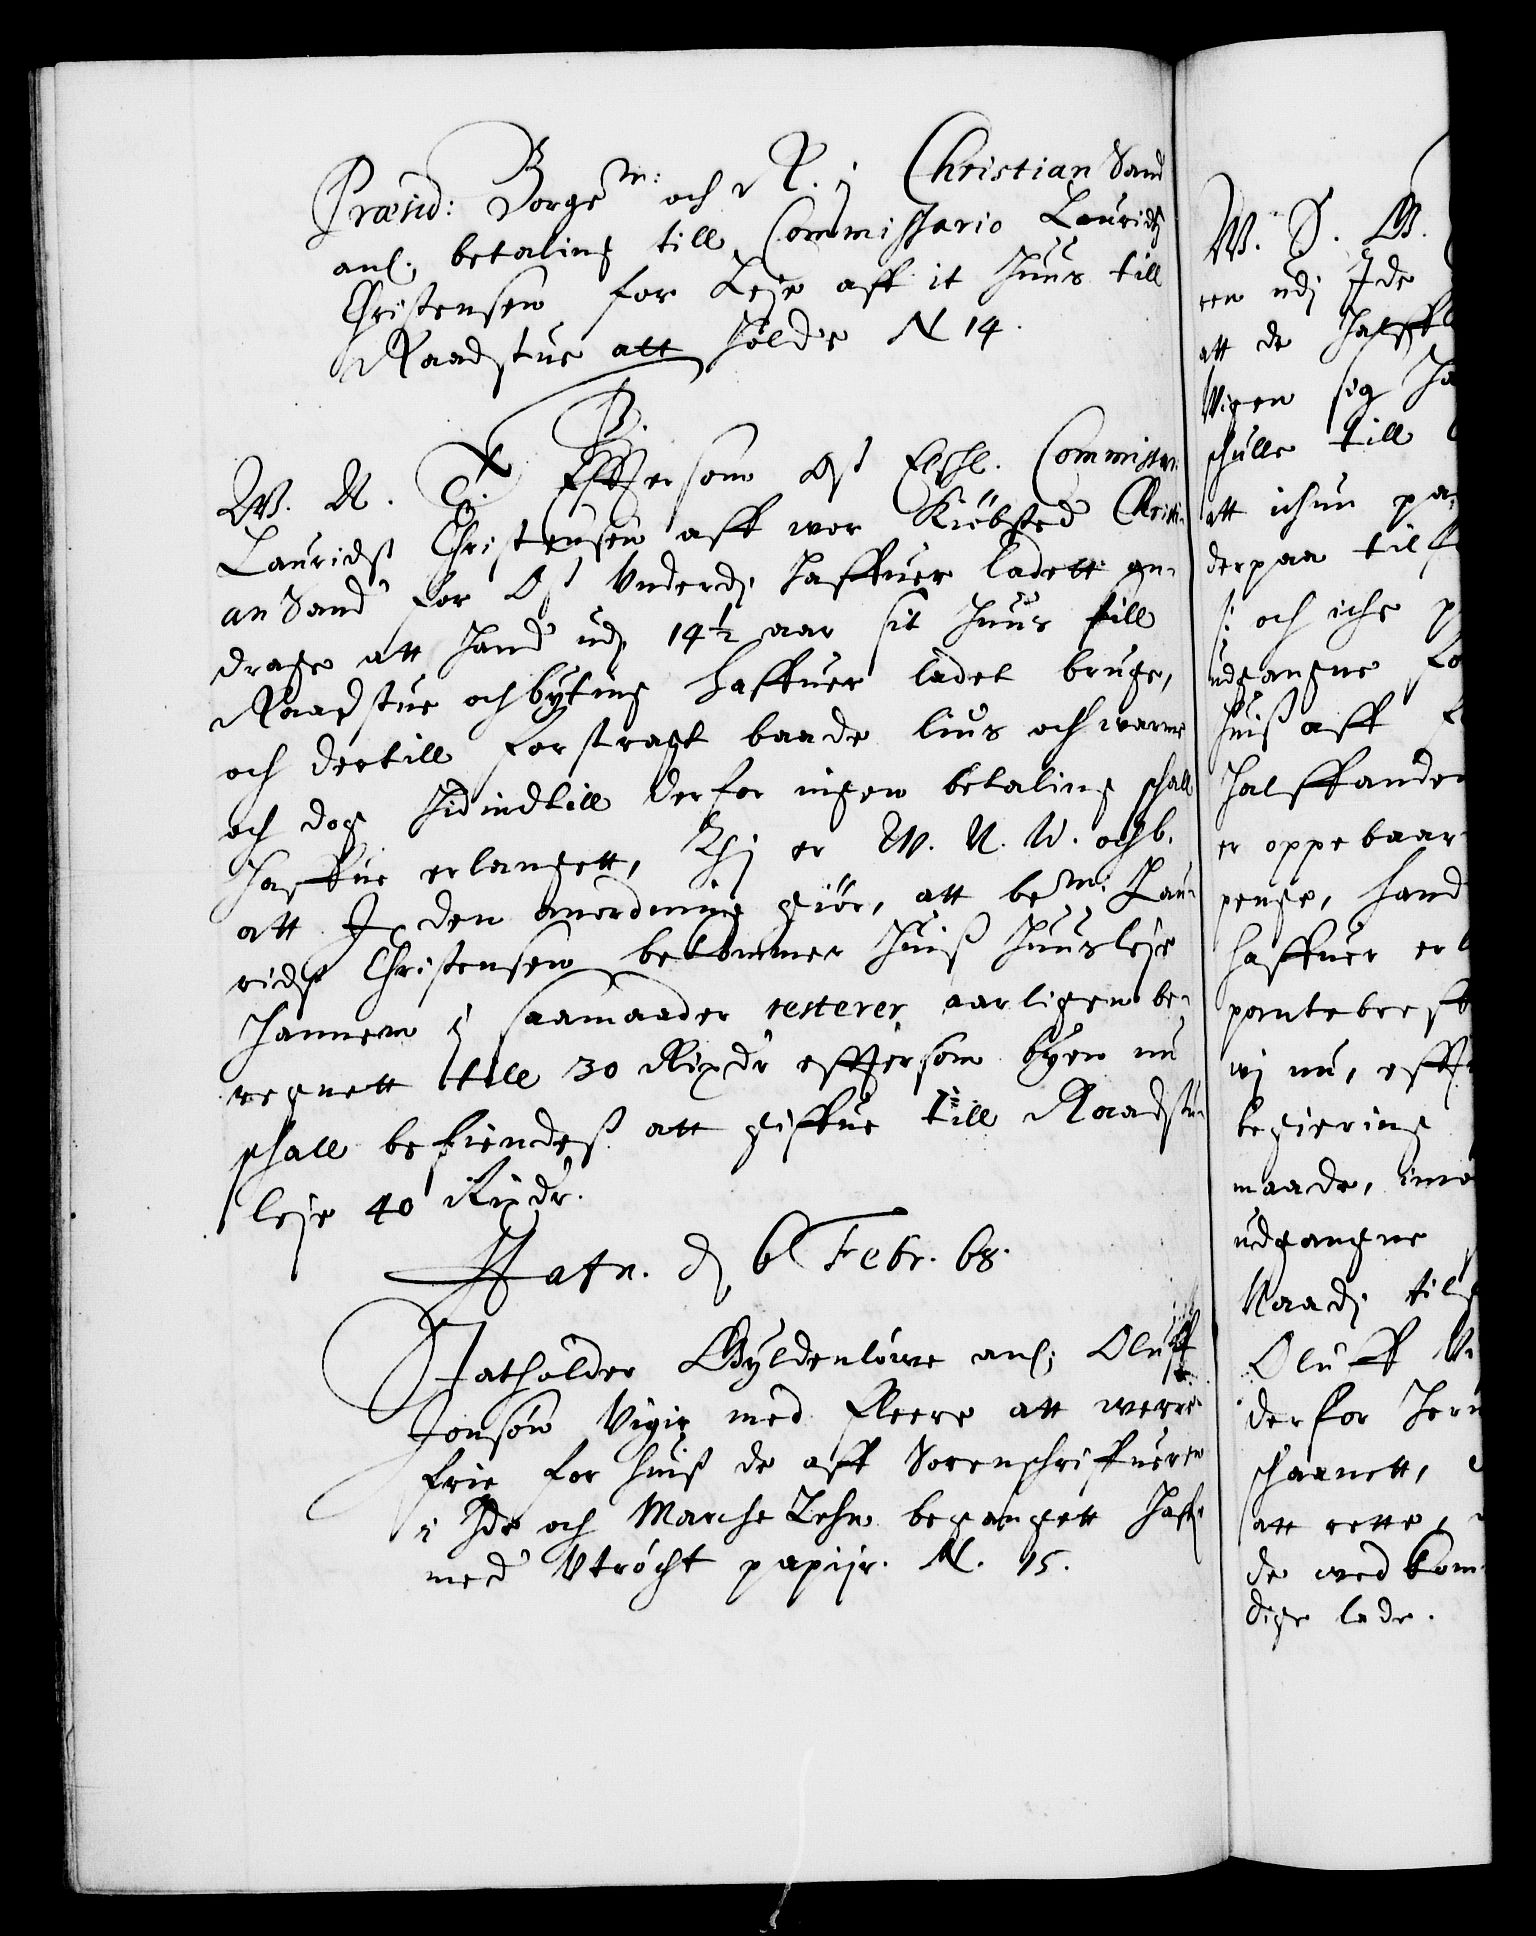 Præsid: Borgem: och R. i Christian Sand
anl: betaling till Commissario Lauridtz
Christensen for Leje aff it Huus till
Raadstue att holde N 14.
W. N. G. B. Effter som Os Elskl. Commissari
Lauridtz Christensen aff wor Kiöbsted Christi-
an Sand for Os Underdj haffuer ladett an-
drage att hand udj 14½ aar sit Huus till
Raadstue och byting haffuer ladet bruge,
och dertill forstragt baade lius och warme
och dog hidindtill derfor ingen betaling schall
haffue erlangett, Thj er W. N. W. och b.
att I den anordning giör, att bem: Lau-
ridtz Christensen bekommer huiß Huusleje
hannem i saamaader resterer aarligen be-
regnett till 30 Rixdr effter som byen nu
schall befindeß att giffue till Raadstue
leje 40 Rixdr.
Hafn. d 6 Febr. 68.
Statholder Gyldenlöwe anl: Oluff
Jonsön Vigir med fleere att werre
frie for huiß de aff Sorenschriffueren
i Ide och Marche Lehn begangett haffr
med Utröcht papiir. N. 15.
W. S. G.
ren udj Ide
att de halff
Wigen sig ha
schulle till
att ichun pa
derpaa till
/: och iche p
udgangne fo
huiß aff
halffanden
er oppebaar
penge, hand
haffuer erl
pantebreff
wj nu, efft
begiering
maade, im
udgangne
Naadj till
Oluff Vi
derfor her
schaanett,
att rette,
de ved kom
dige lade.